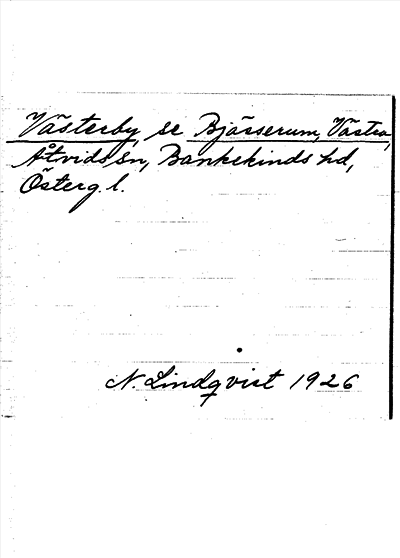 Västerby, se Bjässerum, Västra,
Åtvids sn, Bankekinds hd,
Österg. l.
N. Lindqvist 1926